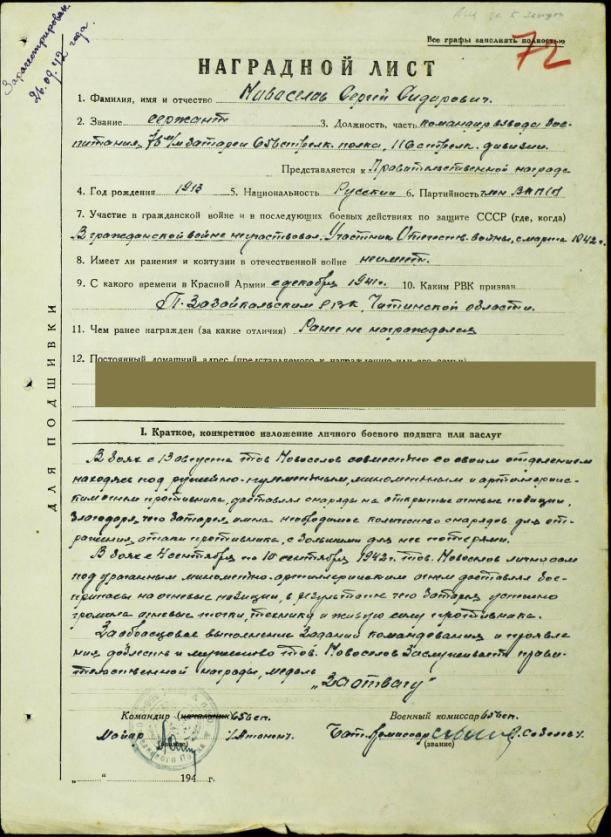 Зарегистрирован
26.09.42 года.
Все графы заполнять полностью
72
НАГРАДНОЙ ЛИСТ
1. Фамилия, имя и отчество Новоселов Сергей Сидорович.
2. Звание сержант 3. Должность, часть командир взвода бое-
питания, батареи 656 стрелк. полка, 116 стрелк. дивизии.
Представляется к Правительственной награде
4. Год рождения 1913 5. Национальность Русский 6. Партийность член ВКП(б)
7. Участие в гражданской войне и в последующих боевых действиях по защите СССР (где, когда)
В гражданской войне не участвовал. Участник Отечеств. войны, с марта 1942 г.
8. Имеет ли ранения и контузии в отечественной войне не имеет.
9. С какого времени в Красной Армии с декабря 1941 г. 10. Каким РВК призван
П.-Забайкальским РВК, Читинской области.
11. Чем ранее награжден (за какие отличия) Ранее не награждался
12. Постоянный домашний адрес (представляемого к награждению или его семьи)
ДЛЯ ПОДШИВКИ
I. Краткое, конкретное изложение личного боевого подвига или заслуг
В боях с 13 августа тов. Новоселов совместно со своим отделением
находясь под ружейно-пулеметным, минометным и артиллерийс-
ким огнем противника, доставлял снаряды на открытые огневые позиции,
благодаря, чего батарея имела необходимое количество снарядов для от-
ражения атаки противника, с большими для него потерями.
В боях с 4 сентября по 10 сентября 1942 г. тов. Новоселов лично сам
под ураганным минометно-артиллерийским огнем доставлял бое-
припасы на огневые позиции, в результате чего батарея успешно
громила огневые точки, технику и живую силу противника.
За образцовое выполнение заданий командования и проявле-
ния доблесть и мужество тов. Новоселов заслуживает прави-
тельственной награды, медаль
„За отвагу"
Командир (начальник) 656 сп. Военный комиссар 656 сп.
Майор Бат. Комиссар
(звание) (звание)
„ " 194 г.